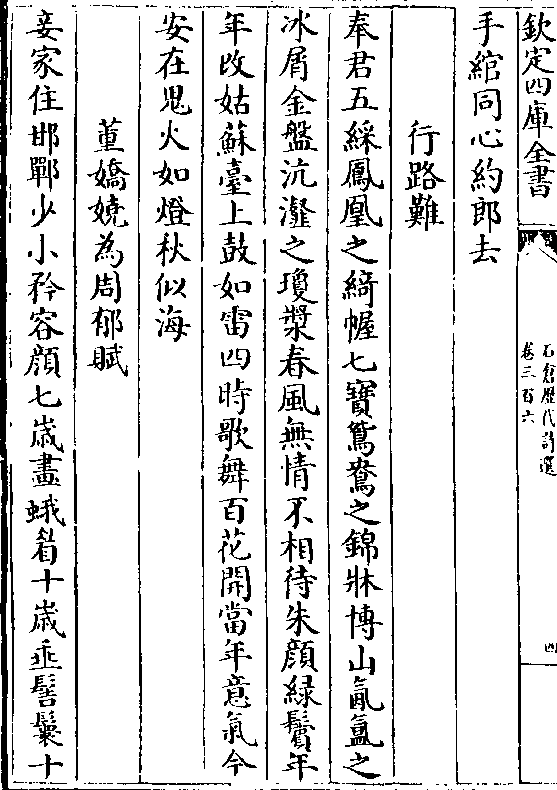 欽定四庫全書
石倉歷代詩選
卷三百六
四
手綰同心約郎去
行路難
奉君五綵鳳凰之綺幄七寶鴛鴦之錦牀博山氤氳之
冰屑金盤沆瀣之瓊漿春風無情不相待朱顔緑鬢年
年改姑蘇臺上鼓如雷四時歌舞百花開當年意氣今
安在鬼火如燈秋似海
董嬌嬈為周郁賦
妾家住邯鄲少小矜容顔七歲畫蛾眉十歲垂髻鬟十